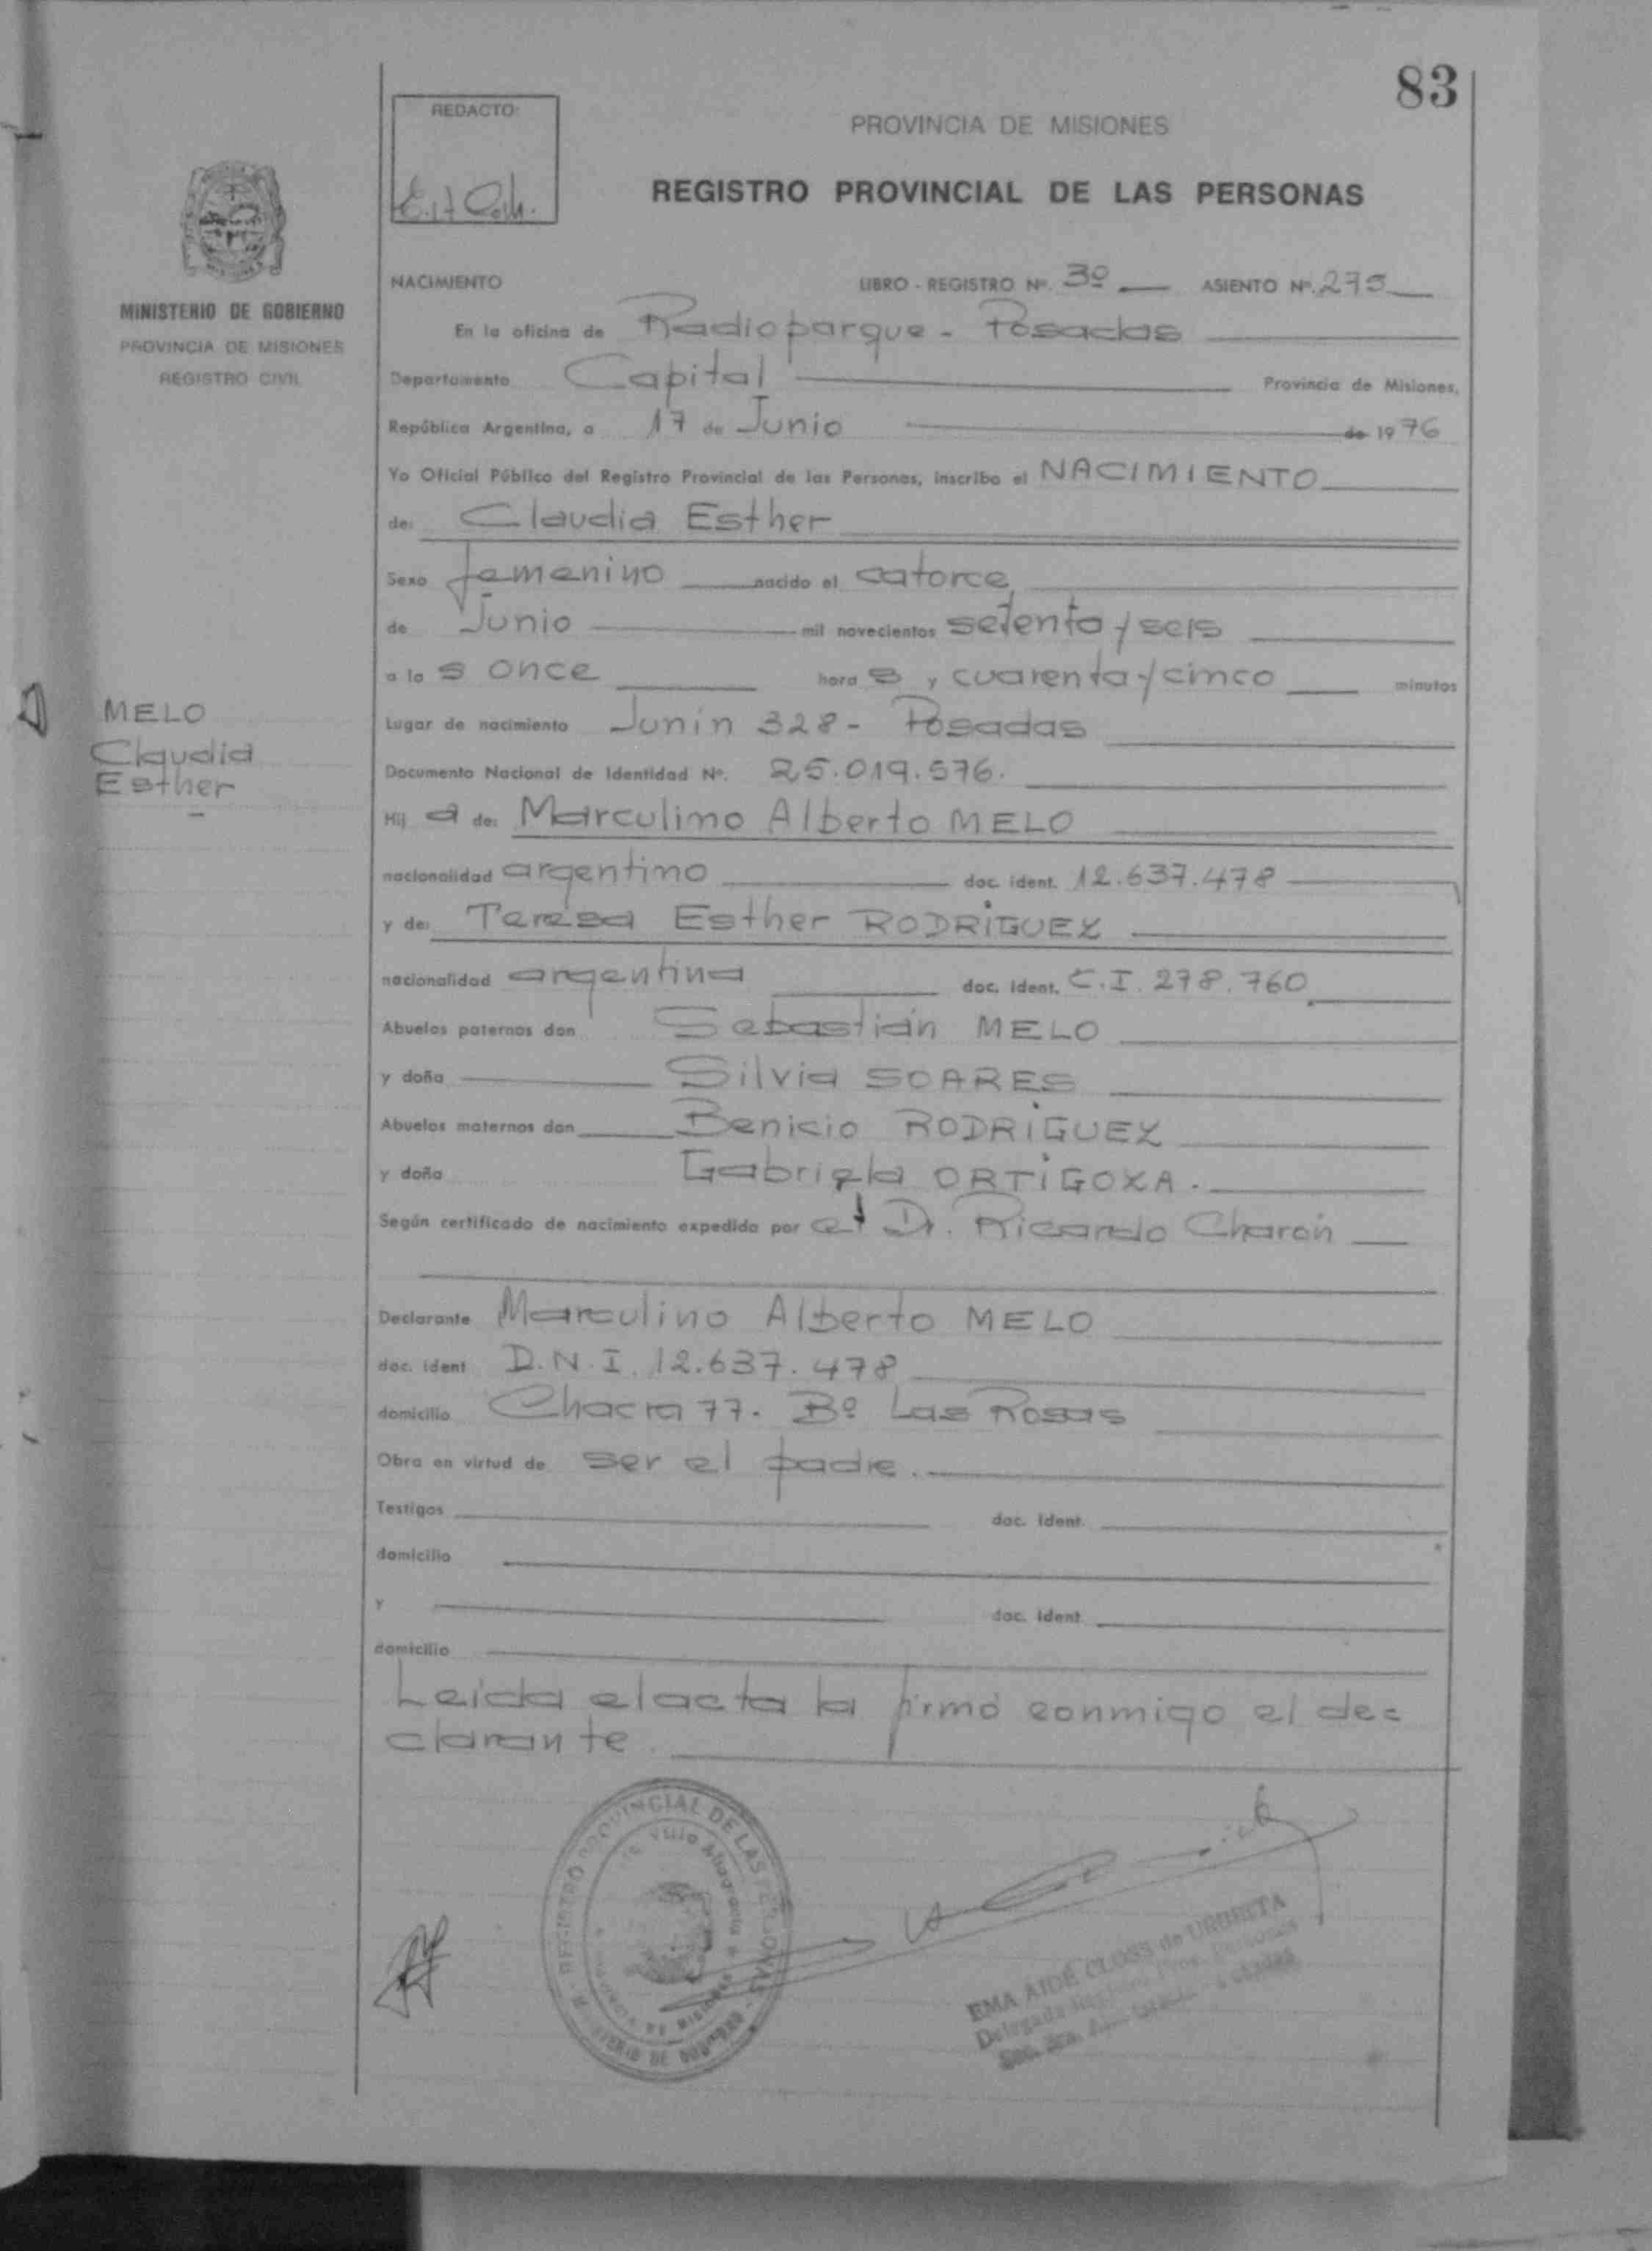 83
REDACTO:
PROVINCIA DE MISIONES
REGISTRO PROVINCIAL DE LAS PERSONAS
MINISTERIO DE GOBIERNO
PROVINCIA DE MISIONES
REGISTRO CIVIL
NACIMIENTO LIBRO - REGISTRO Nº. 3º ASIENTO Nº. 275
En la oficina de Radioparque - Posadas
Departamento Capital Provincia de Misiones,
República Argentina, a 17 de Junio de 1976
Yo Oficial Público del Registro Provincial de las Personas, inscribo el NACIMIENTO
de: Claudia Esther
Sexo femenino nacido el catorce
de Junio mil novecientos setenta y seis
a la s once hora s y cuarenta y cinco minutos
MELO
Claudia
Esther
Lugar de nacimiento Junín 328 - Posadas
Documento Nacional de Identidad Nº. 25.019.576.
Hij a de: Marculino Alberto MELO
nacionalidad argentino doc. ident. 12.637.478
y de: Teresa Esther RODRIGUEZ
nacionalidad argentina doc. ident. C.I. 278.760
Abuelos paternos don Sebastián MELO
y doña Silvia SOARES
Abuelos maternos don Benicio RODRIGUEZ
y doña Gabriela ORTIGOZA.
Según certificado de nacimiento expedido por el Dr. Ricardo Charón
Declarante Marculino Alberto MELO
doc. ident D.N.I. 12.637.478
domicilio Chacra 77. Bº Las Rosas
Obra en virtud de ser el padre.
Testigos doc. ident.
domicilio
y doc. ident.
domicilio
Leida el acta la firmó conmigo el de=
clarante
REGISTRO PROVINCIAL DE LAS PERSONAS
EMA AIDÉ CLOSS de URRUTIA